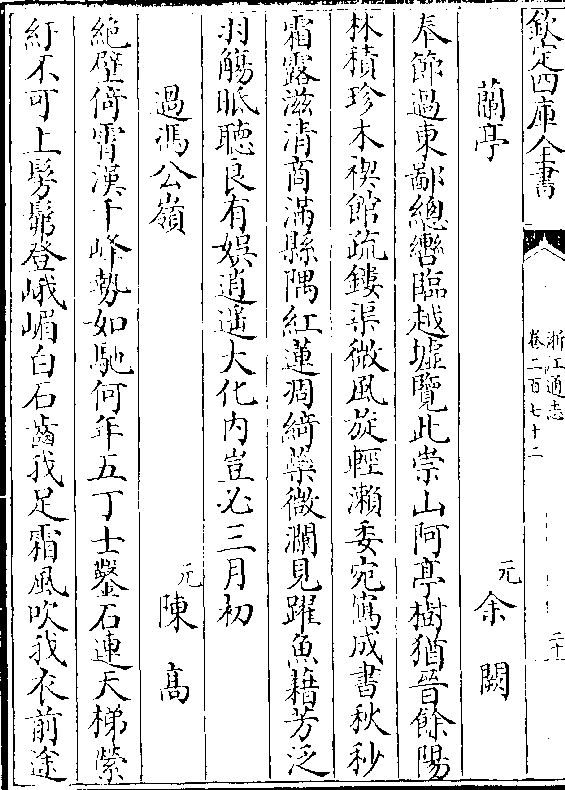 欽定四庫全書
浙江通志
卷二百七十二
二十
蘭亭
元余闕
奉節過東鄙總轡臨越墟覽此崇山阿亭樹猶晉餘陽
林積珍木禊館疏鏤渠微風旋輕瀨委宛寫成書秋杪
霜露滋清商滿縣隅紅蓮凋綺蘂微瀾見躍魚藉芳泛
羽觴眂聽良有娯逍遥大化内豈必三月初
過馮公嶺
元陳高
絶壁倚霄漢千峰勢如馳何年五丁士鑿石連天梯縈
紆不可上髣髴登峨嵋白石齒我足霜風吹我衣前途